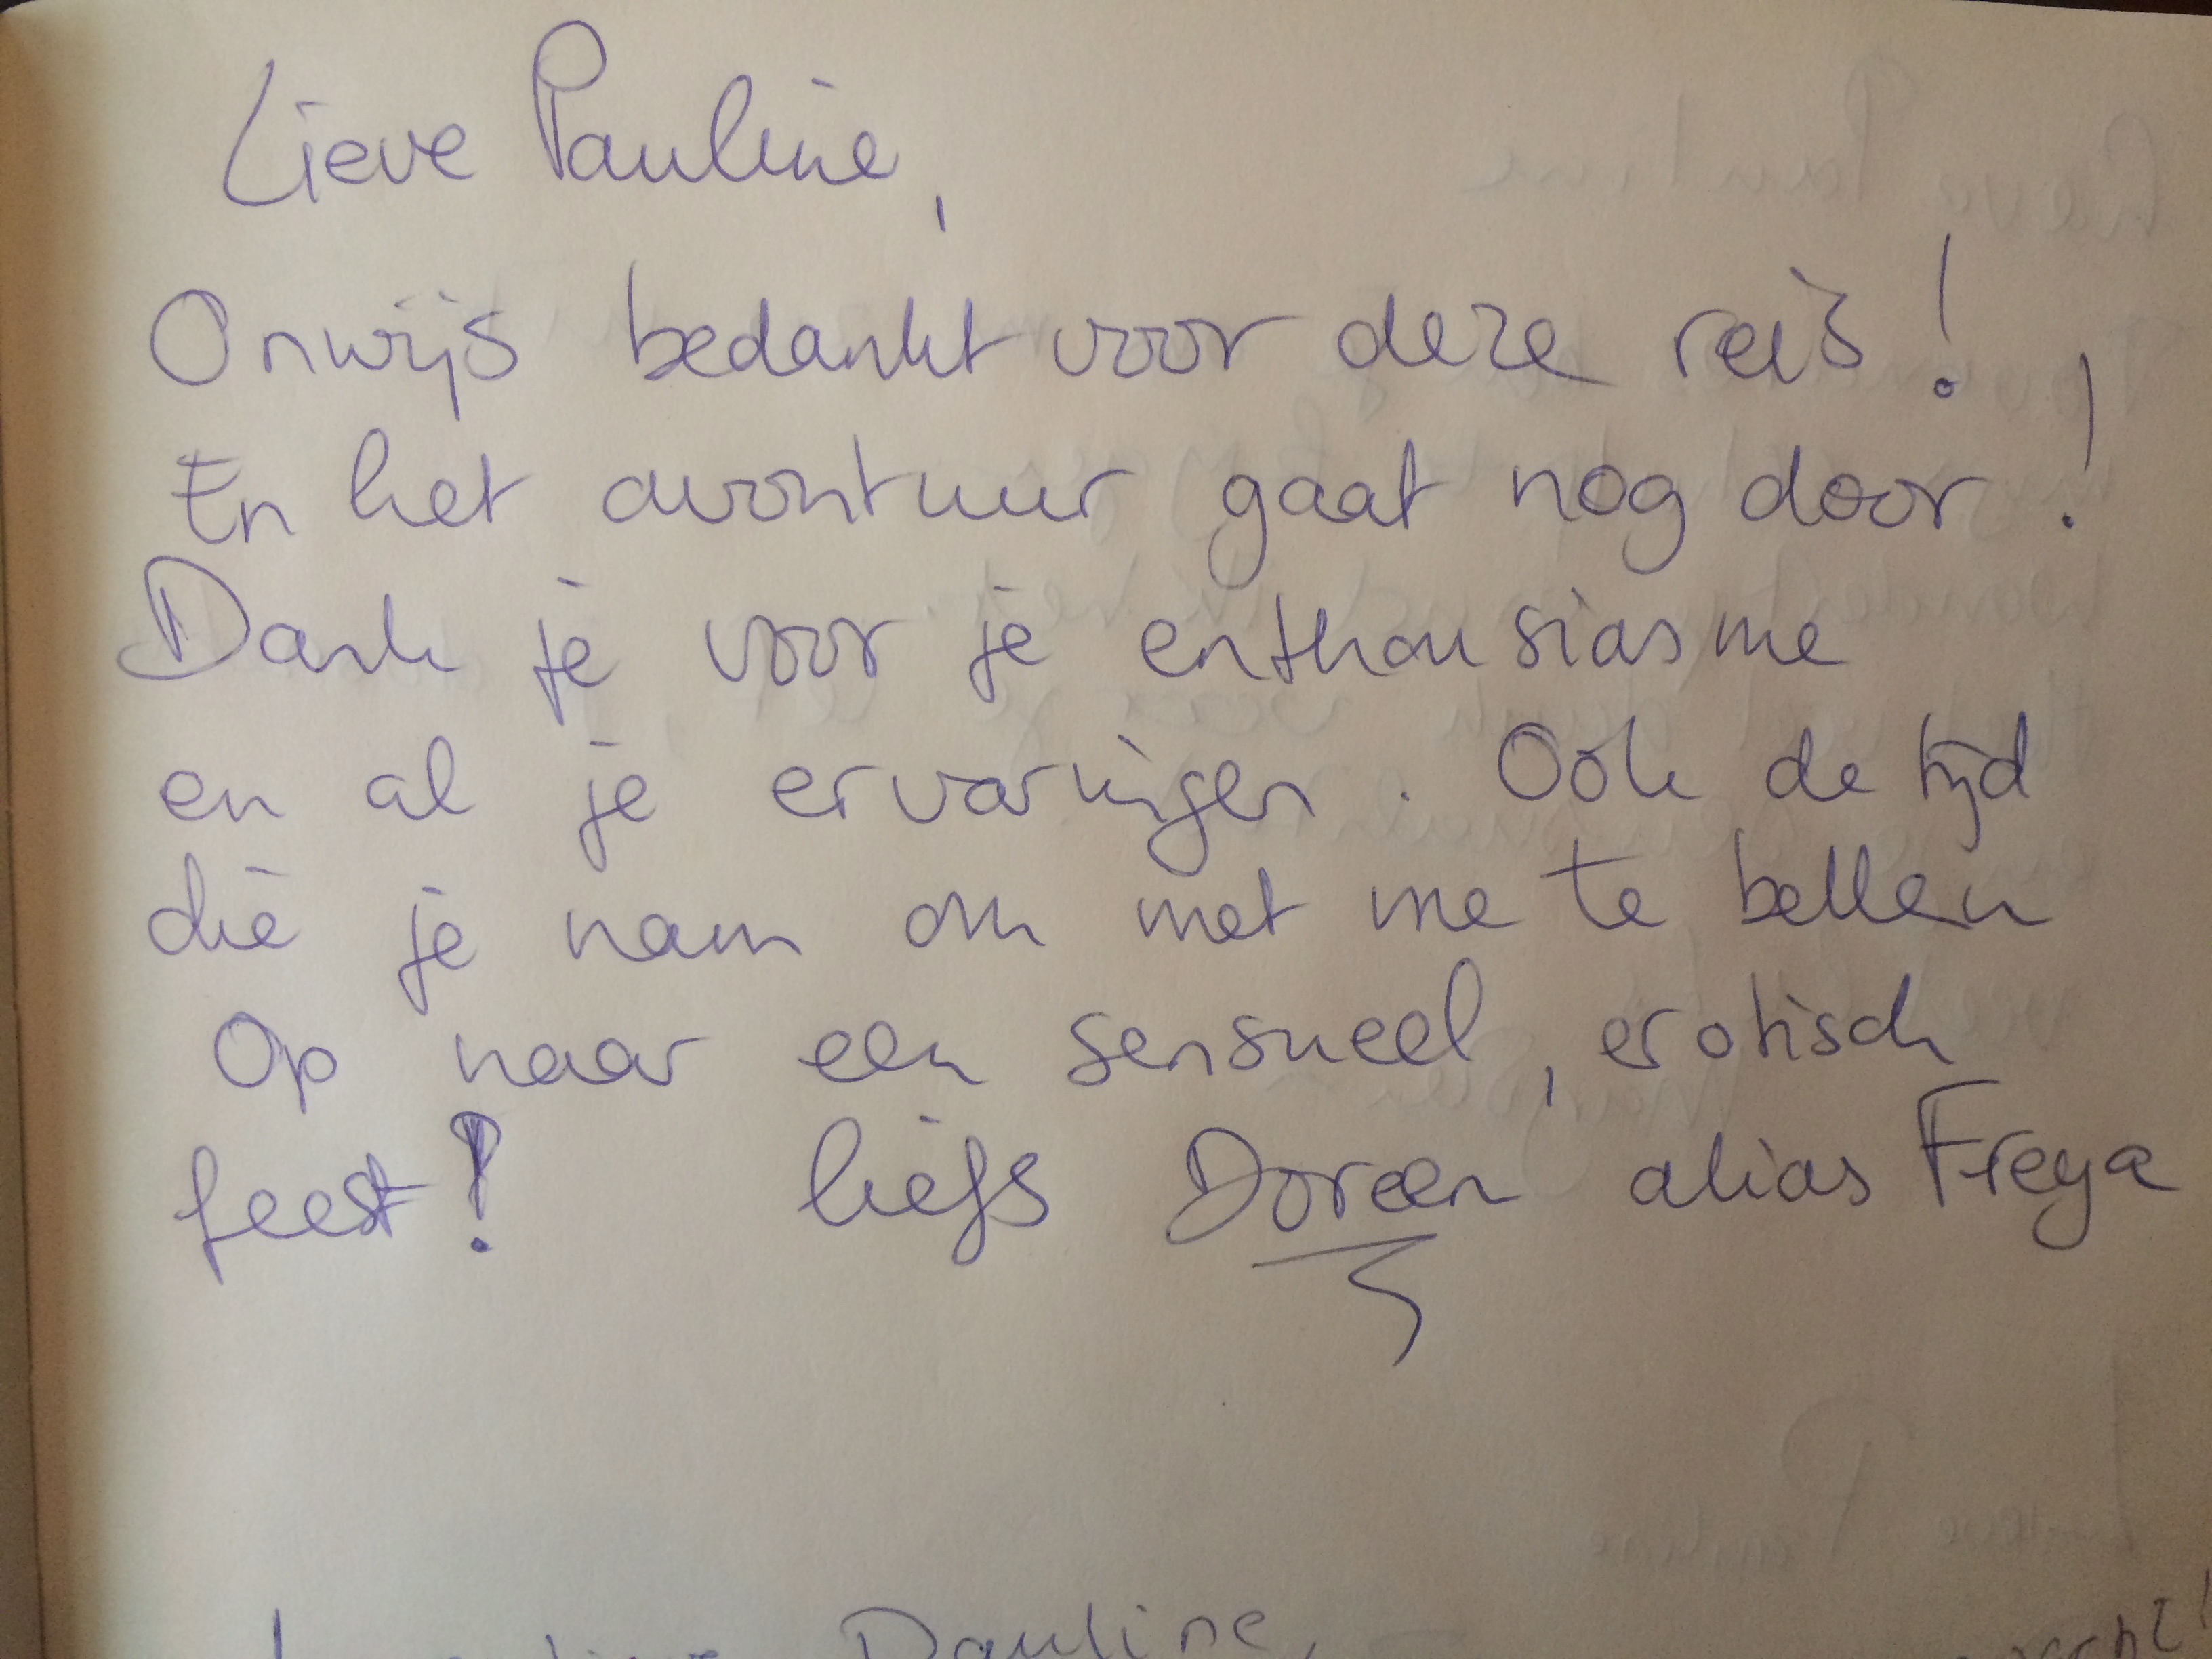 Lieve Pauline,
Onwijs bedankt voor deze reis!
En het avontuur gaat nog door!
Dank je voor je enthousiasme
en al je ervaringen. Ook de tijd
die je nam om met me te bellen
Op naar een sensueel, erotisch
feest! liefs Doreen alias Freya
Pauline,